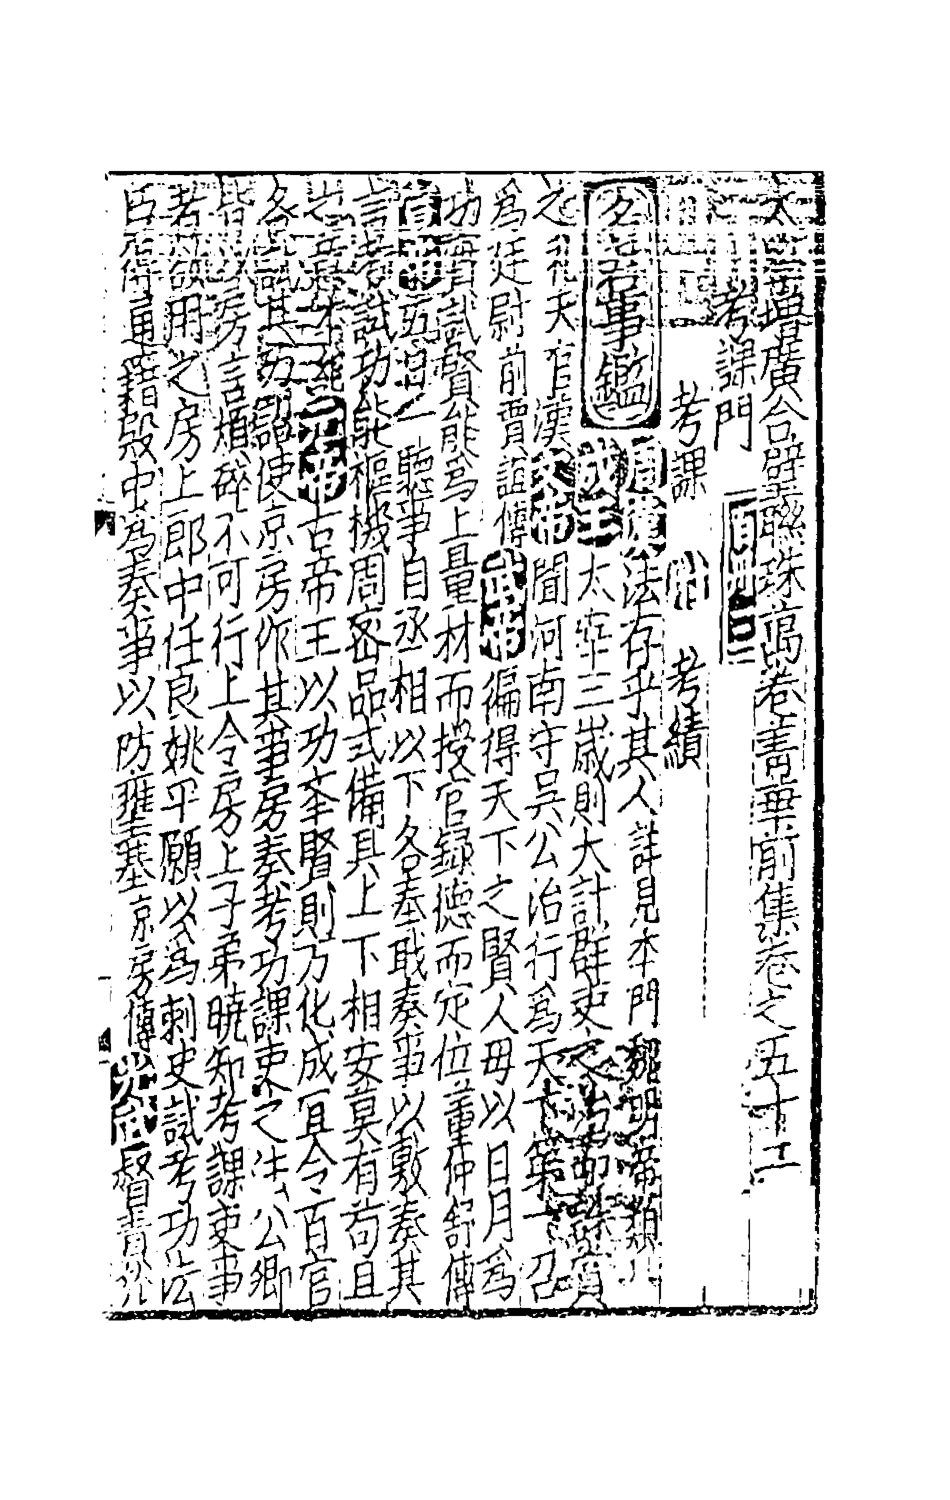 太學增廣合璧聯珠萬卷菁華前集卷之五十二
考課門
考課 附 考績
名君事鑑 法存乎其人詳見本門 魏明帝類
成王 太宰三歲則大計群吏之治而誅賞
之 禮天官 漢文帝 聞河南守吳公治行為天下第一召
為廷尉 前賈誼傳 武帝 徧得天下之賢人毋以日月為
功實試賢能為上量材而授官錄德而定位 董仲舒傳
宣帝 五日一聽事自丞相以下各奉職奏事以敷奏其
言考試功能樞機周密品式備具上下相安莫有苟且
之意 元帝 古帝王以功舉賢則万化成 宜令百官
各試其功詔使京房作其事房奏考功課吏之法公卿
皆以房言煩碎不可行上令房上子弟曉知考課吏事
者欲用之房上郎中任良姚平願以為刺史試考功法
臣得通籍殿中為奏事以防壅塞 京房傳 光武 督責